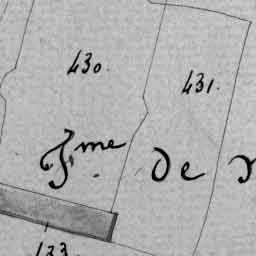 430.
431.
J.me de
133